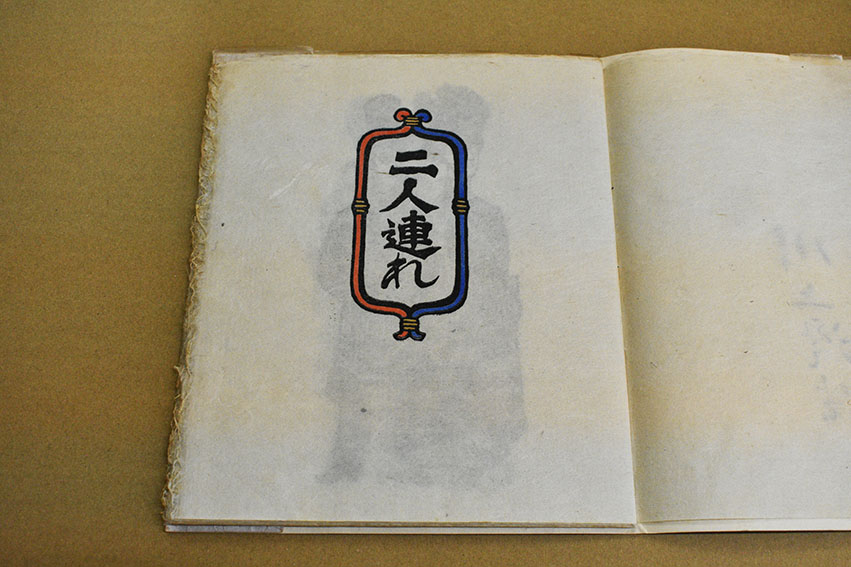 二人連れ